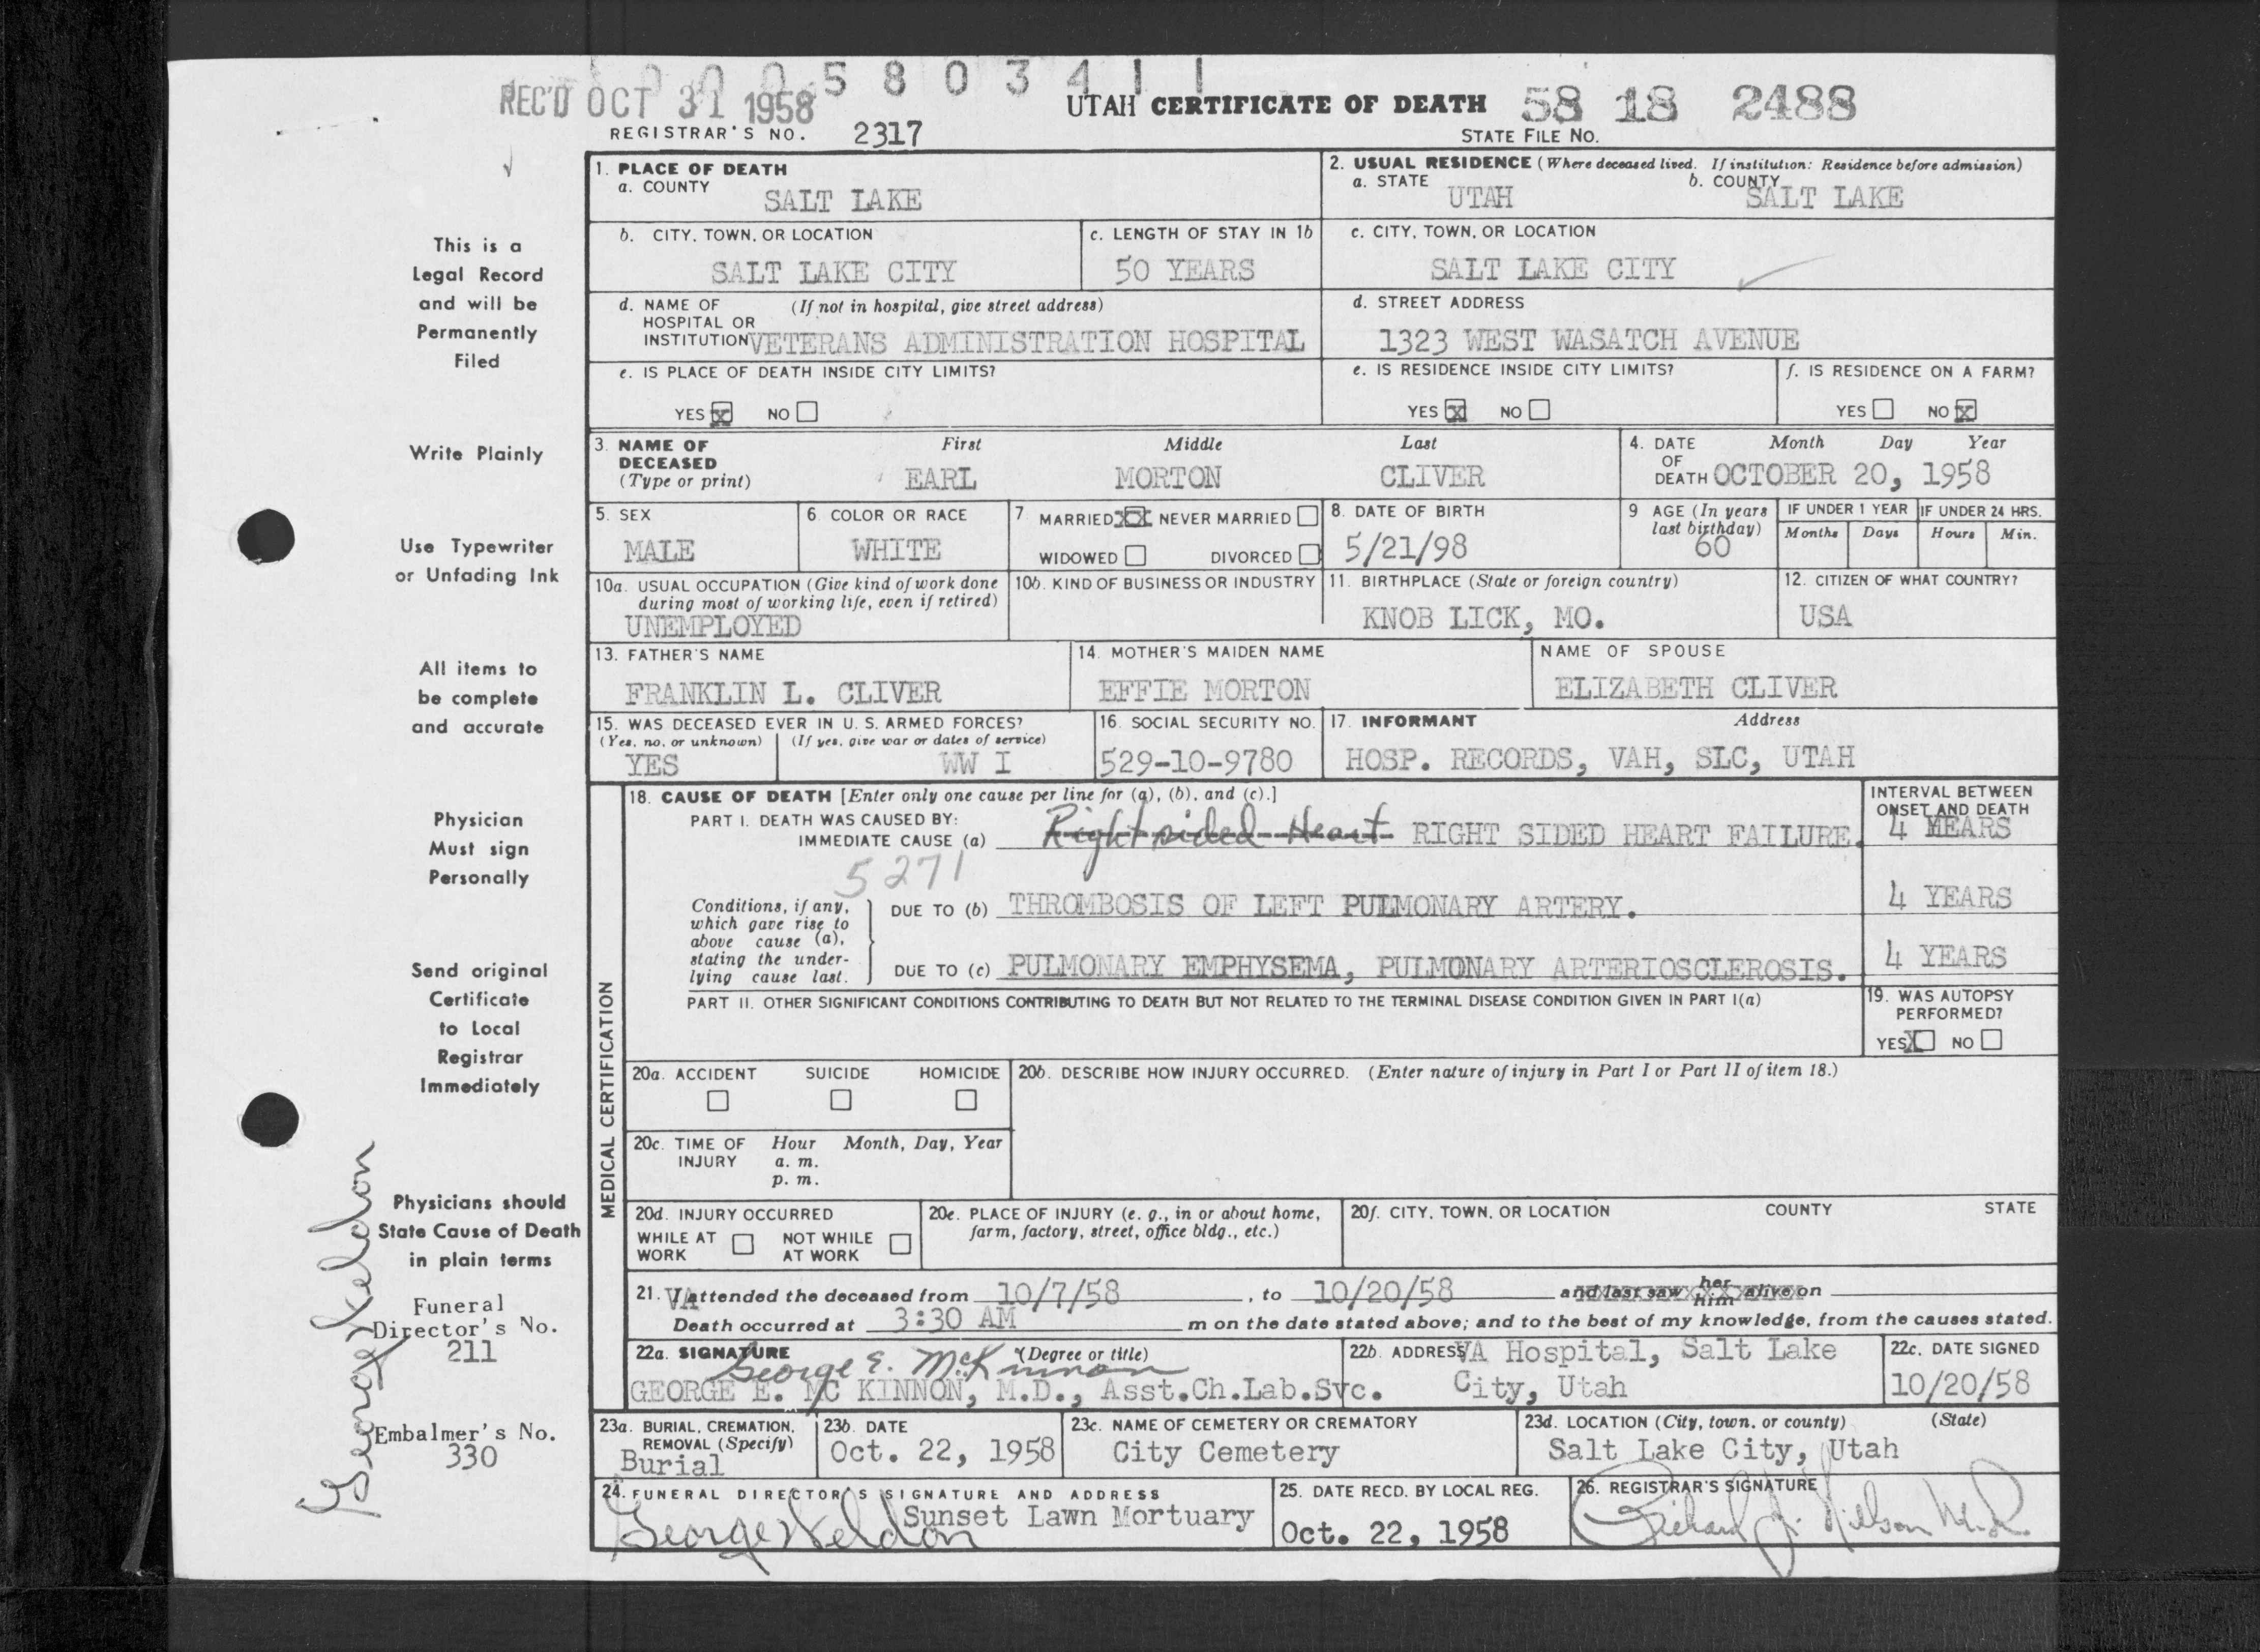 0 0 0 5 8 0 3 4 1 1
REC'D OCT 31 1958
UTAH CERTIFICATE OF DEATH 58 18 2488
REGISTRAR'S NO. 2317
STATE FILE NO.
This is a
Legal Record
and will be
Permanently
Filed
Write Plainly
Use Typewriter
or Unfading Ink
All items to
be complete
and accurate
Physician
Must sign
Personally
Send original
Certificate
to Local
Registrar
Immediately
Physicians should
State Cause of Death
in plain terms
Funeral
Director's No.
211
Embalmer's No.
330
George Weldon
1. PLACE OF DEATH
a. COUNTY
SALT LAKE
2. USUAL RESIDENCE (Where deceased lived. If institution: Residence before admission)
a. STATE UTAH b. COUNTY SALT LAKE
b. CITY, TOWN, OR LOCATION
SALT LAKE CITY
c. LENGTH OF STAY IN 1b
50 YEARS
c. CITY, TOWN, OR LOCATION
SALT LAKE CITY
d. NAME OF (If not in hospital, give street address)
HOSPITAL OR
INSTITUTION VETERANS ADMINISTRATION HOSPITAL
d. STREET ADDRESS
1323 WEST WASATCH AVENUE
e. IS PLACE OF DEATH INSIDE CITY LIMITS?
YES X NO
e. IS RESIDENCE INSIDE CITY LIMITS?
YES X NO
f. IS RESIDENCE ON A FARM?
YES NO X
3. NAME OF First Middle Last
DECEASED
(Type or print) EARL MORTON CLIVER
4. DATE Month Day Year
OF
DEATH OCTOBER 20, 1958
5. SEX
MALE
6. COLOR OR RACE
WHITE
7. MARRIED XX NEVER MARRIED
WIDOWED DIVORCED
8. DATE OF BIRTH
5/21/98
9. AGE (In years
last birthday)
60
IF UNDER 1 YEAR IF UNDER 24 HRS.
Months Days Hours Min.
10a. USUAL OCCUPATION (Give kind of work done
during most of working life, even if retired)
UNEMPLOYED
10b. KIND OF BUSINESS OR INDUSTRY
11. BIRTHPLACE (State or foreign country)
KNOB LICK, MO.
12. CITIZEN OF WHAT COUNTRY?
USA
13. FATHER'S NAME
FRANKLIN L. CLIVER
14. MOTHER'S MAIDEN NAME
EFFIE MORTON
NAME OF SPOUSE
ELIZABETH CLIVER
15. WAS DECEASED EVER IN U. S. ARMED FORCES?
(Yes, no, or unknown) (If yes, give war or dates of service)
YES WW I
16. SOCIAL SECURITY NO.
529-10-9780
17. INFORMANT Address
HOSP. RECORDS, VAH, SLC, UTAH
MEDICAL CERTIFICATION
18. CAUSE OF DEATH [Enter only one cause per line for (a), (b), and (c).]
PART I. DEATH WAS CAUSED BY:
IMMEDIATE CAUSE (a) Right sided Heart RIGHT SIDED HEART FAILURE.
INTERVAL BETWEEN
ONSET AND DEATH
4 YEARS
5271
Conditions, if any,
which gave rise to
above cause (a),
stating the under-
lying cause last.
DUE TO (b) THROMBOSIS OF LEFT PULMONARY ARTERY.
4 YEARS
DUE TO (c) PULMONARY EMPHYSEMA, PULMONARY ARTERIOSCLEROSIS.
4 YEARS
PART II. OTHER SIGNIFICANT CONDITIONS CONTRIBUTING TO DEATH BUT NOT RELATED TO THE TERMINAL DISEASE CONDITION GIVEN IN PART I(a)
19. WAS AUTOPSY
PERFORMED?
YES X NO
20a. ACCIDENT SUICIDE HOMICIDE
20b. DESCRIBE HOW INJURY OCCURRED. (Enter nature of injury in Part I or Part II of item 18.)
20c. TIME OF Hour Month, Day, Year
INJURY a. m.
p. m.
20d. INJURY OCCURRED
WHILE AT NOT WHILE
WORK AT WORK
20e. PLACE OF INJURY (e. g., in or about home,
farm, factory, street, office bldg., etc.)
20f. CITY, TOWN, OR LOCATION COUNTY STATE
21. VA attended the deceased from 10/7/58, to 10/20/58 and last saw her him alive on
Death occurred at 3:30 AM m on the date stated above; and to the best of my knowledge, from the causes stated.
22a. SIGNATURE (Degree or title)
George E. McKinnon
GEORGE E. MC KINNON, M.D., Asst.Ch.Lab.Svc.
22b. ADDRESS VA Hospital, Salt Lake
City, Utah
22c. DATE SIGNED
10/20/58
23a. BURIAL, CREMATION,
REMOVAL (Specify)
Burial
23b. DATE
Oct. 22, 1958
23c. NAME OF CEMETERY OR CREMATORY
City Cemetery
23d. LOCATION (City, town, or county) (State)
Salt Lake City, Utah
24. FUNERAL DIRECTOR'S SIGNATURE AND ADDRESS
George Weldon Sunset Lawn Mortuary
25. DATE RECD. BY LOCAL REG.
Oct. 22, 1958
26. REGISTRAR'S SIGNATURE
Richard J. Nilson M.D.